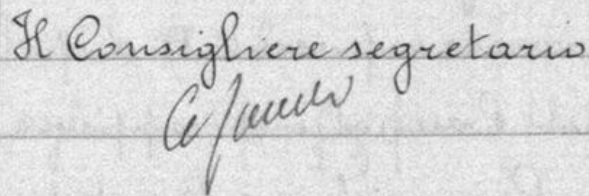 Il Consigliere segretario